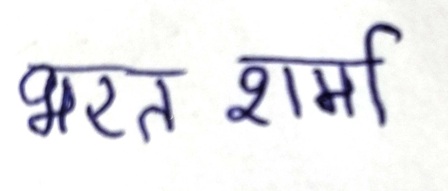 भरत शर्मा